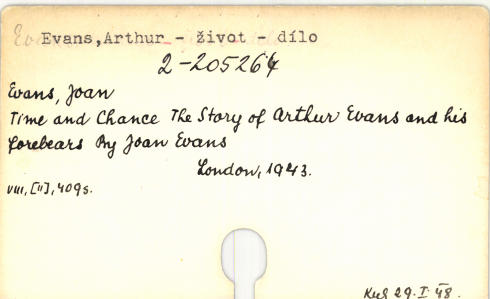 Evans,Arthur - život - dílo
2-205264
Evans, Joan
Time and Chance The Story of Arthur Evans and his
forebears By Joan Evans
London, 1943.
VIII, [II], 409 s.
29. I. 48.